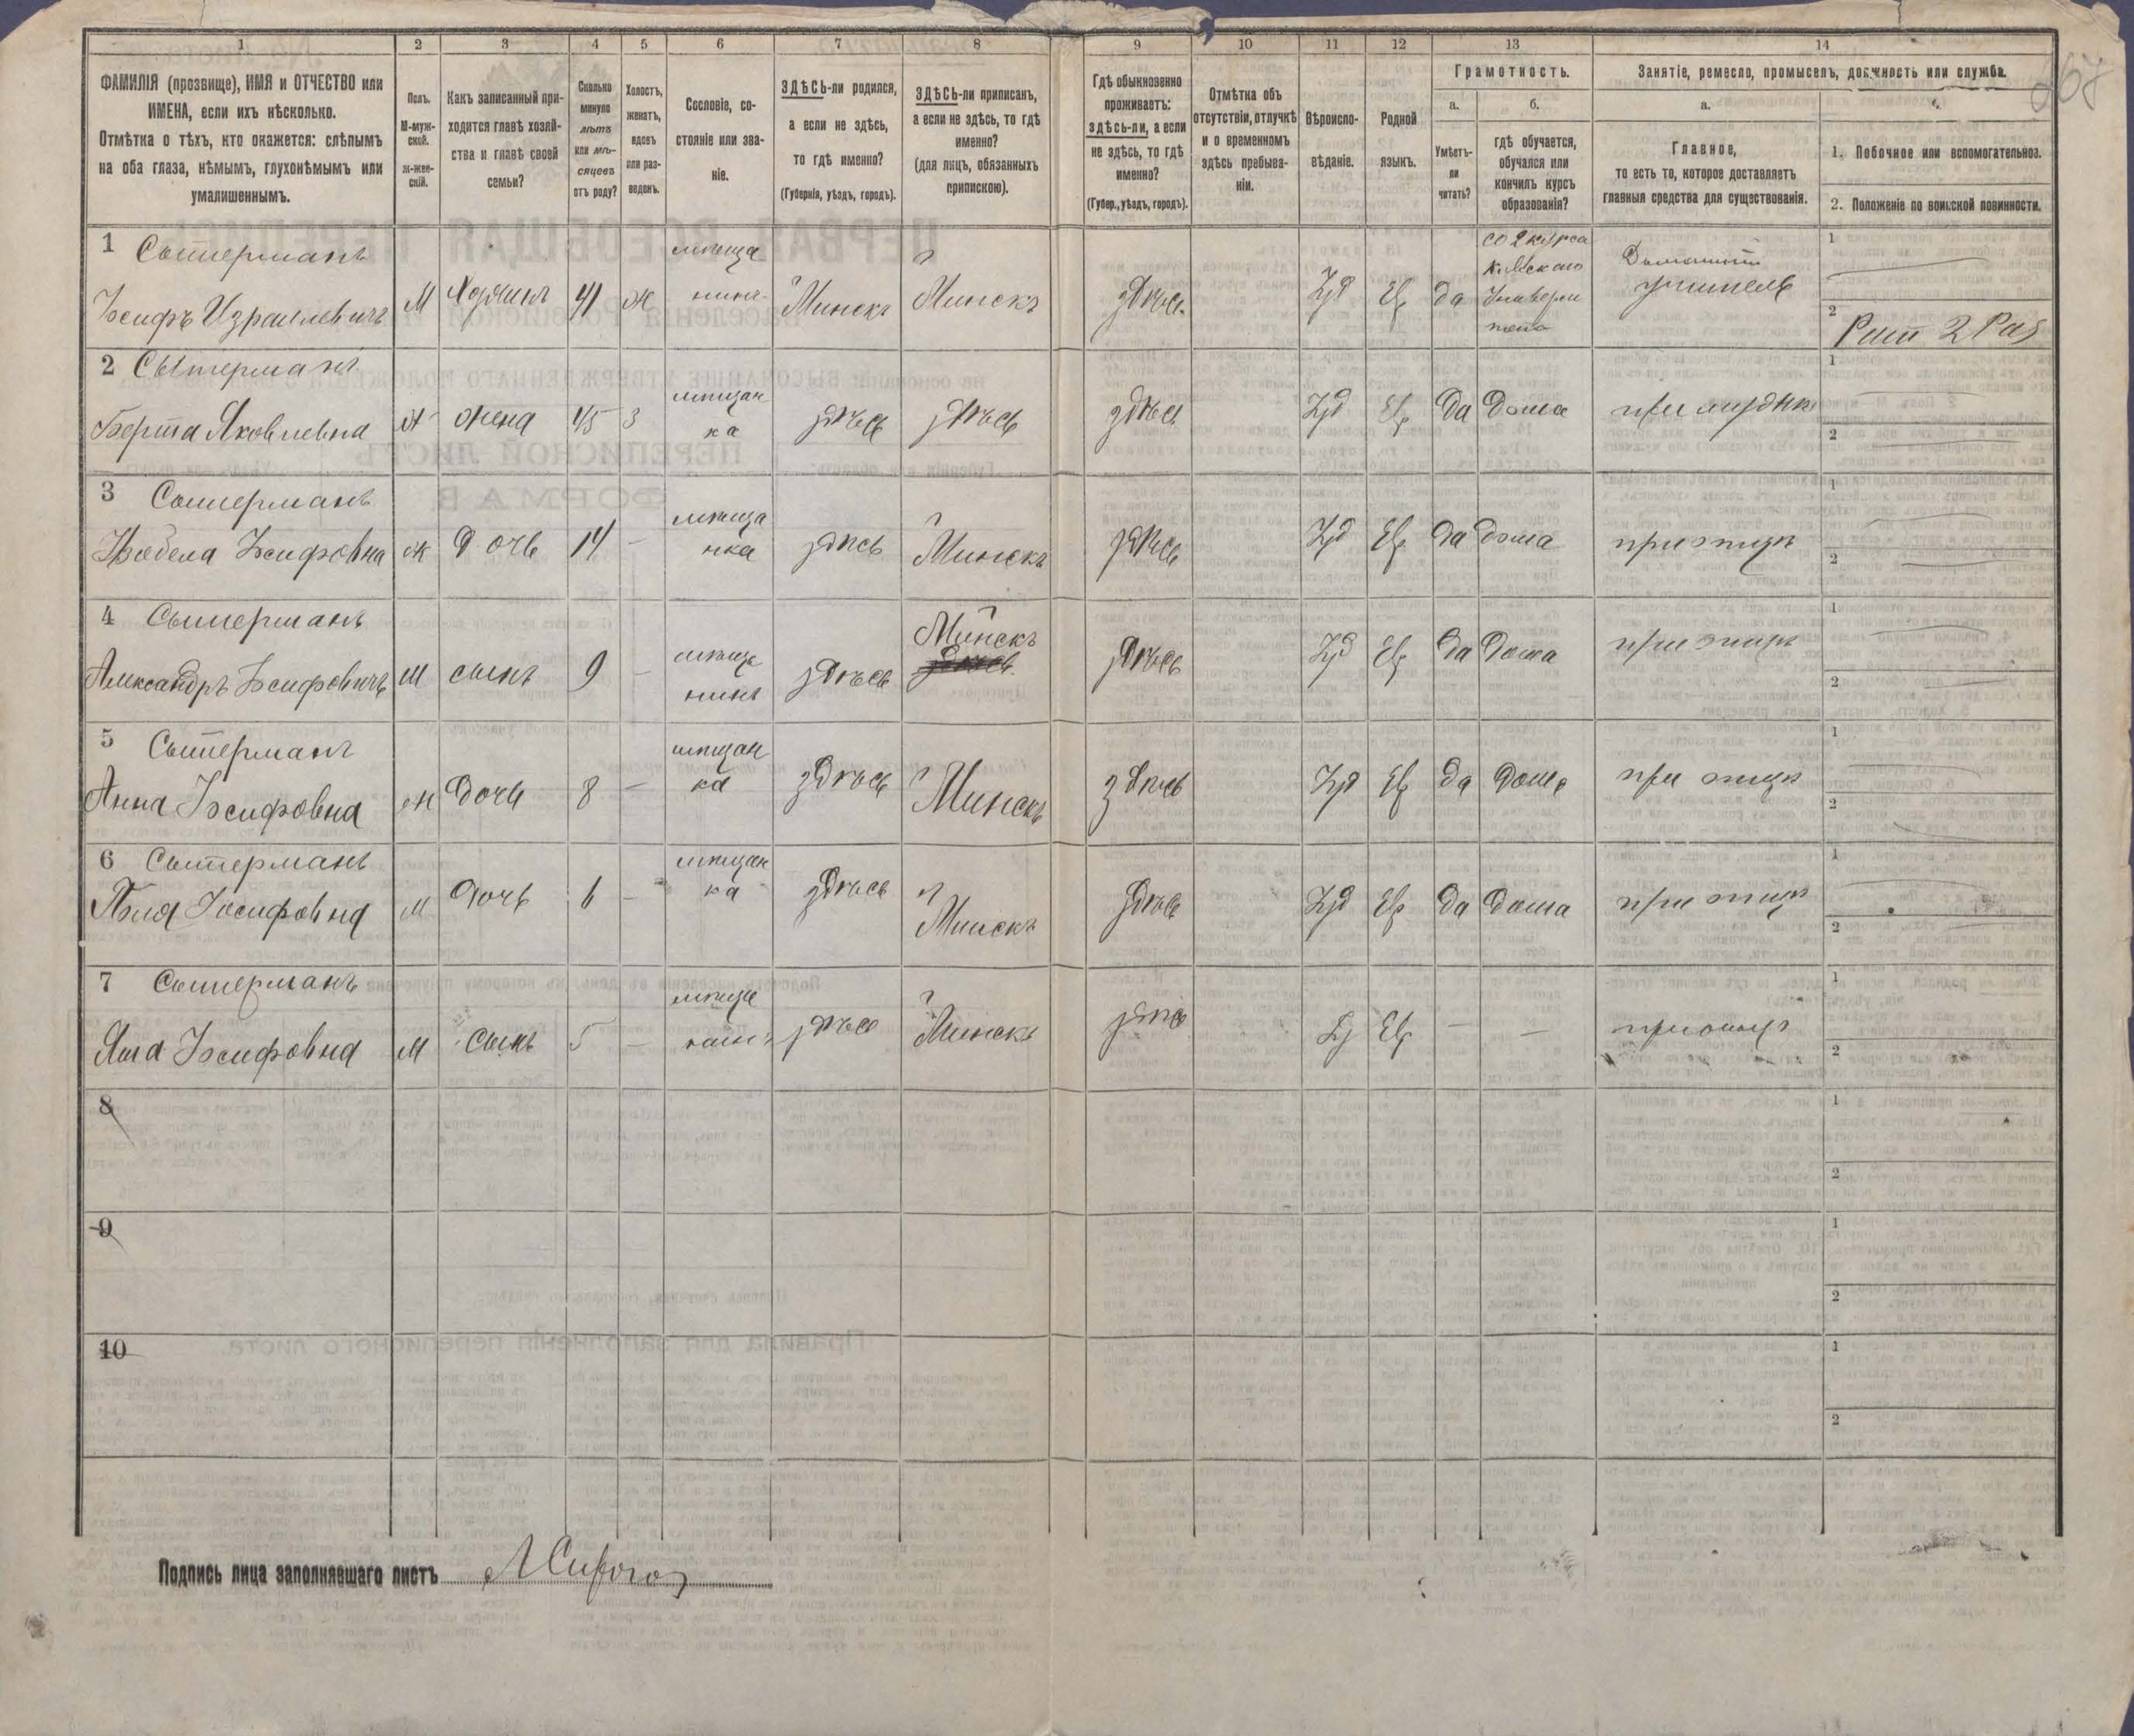 1 2 3 4 5 6 7 8 9 10 11 12 13 14
ФАМИЛІЯ (прозвище), ИМЯ и ОТЧЕСТВО или
ИМЕНА, если ихъ нѣсколько.
Отмѣтка о тѣхъ, кто окажется: слѣпымъ
на оба глаза, нѣмымъ, глухонѣмымъ или
умалишеннымъ.
Полъ.
М-муж-
ской.
ж-жен-
скій.
Какъ записанный при-
ходится главѣ хозяй-
ства и главѣ своей
семьи?
Сколько
минуло
лѣтъ
или мѣ-
сяцевъ
отъ роду?
Холостъ,
женатъ,
вдовъ
или раз-
веденъ.
Сословіе, со-
стояніе или зва-
ніе.
ЗДѢСЬ-ли родился,
а если не здѣсь,
то гдѣ именно?
(Губернія, уѣздъ, городъ).
ЗДѢСЬ-ли приписанъ,
а если не здѣсь, то гдѣ
именно?
(для лицъ, обязанныхъ
припискою).
Гдѣ обыкновенно
проживаетъ:
здѣсь-ли, а если
не здѣсь, то гдѣ
именно?
(Губер., уѣздъ, городъ).
Отмѣтка объ
отсутствіи, отлучкѣ
и о временномъ
здѣсь пребыва-
ніи.
Вѣроиспо-
вѣданіе.
Родной
языкъ.
Грамотность.
а.
Умѣетъ-
ли
читать?
б.
гдѣ обучается,
обучался или
кончилъ курсъ
образованія?
Занятіе, ремесло, промыселъ, должность или служба.
а.
Главное,
то есть то, которое доставляетъ
главныя средства для существованія.
1. Побочное или вспомогательное.
2. Положеніе по воинской повинности.
1 Сытерманъ
Іосифъ Израилевичъ М Хозяинъ 41 ж мѣща
нинъ г. Минскъ г. Минскъ здѣсь Іуд Ев да со 2 курса
Домашній
учитель
1
2 Рат 2 Раз
2 Сытерманъ
Берта Яковлевна ж жена 45 З мѣщан
ка здѣсь здѣсь здѣсь Іуд Ев да Дома при мужѣ
1
2
3 Сытерманъ
Іосифовна ж Дочь 14 – мѣща
нка здѣсь г. Минскъ здѣсь Іуд Ев да дома при отцѣ
1
2
4 Сытерманъ
Александръ Іосифовичъ М сынъ 9 – мѣща
нинъ здѣсь г. Минскъ здѣсь Іуд Ев да дома при отцѣ
1
2
5 Сытерманъ
Анна Іосифовна ж Дочь 8 – мѣщан
ка здѣсь г. Минскъ здѣсь Іуд Ев да дома при отцѣ
1
2
6 Сытерманъ
Іосифовна М Дочь 6 – мѣщан
ка здѣсь г. Минскъ здѣсь Іуд Ев да дома при отцѣ
1
2
7 Сытерманъ
Яша Іосифовна М Сынъ 5 – мѣща
нинъ здѣсь г. Минскъ здѣсь Іуд Ев – – при отцѣ
1
2
8
1
2
9
1
2
10
1
2
Подпись лица заполнявшаго листъ